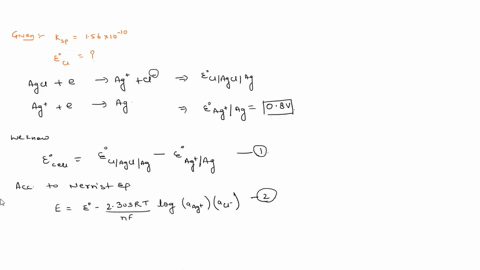 Given :- Ksp = 1.56 x 10^-10
ε°Cl = ?
AgCl + e → Ag+ + Cl⊖ ⇒ ε°Cl/AgCl/Ag
Ag+ + e → Ag ⇒ ε°Ag+/Ag = 0.8V
We know
ε°cell = ε°Cl/AgCl/Ag − ε°Ag+/Ag — ①
Acc to Nernst Eq
E = ε° − 2.303RT/nF log (aAg+)(aCl-) — ②